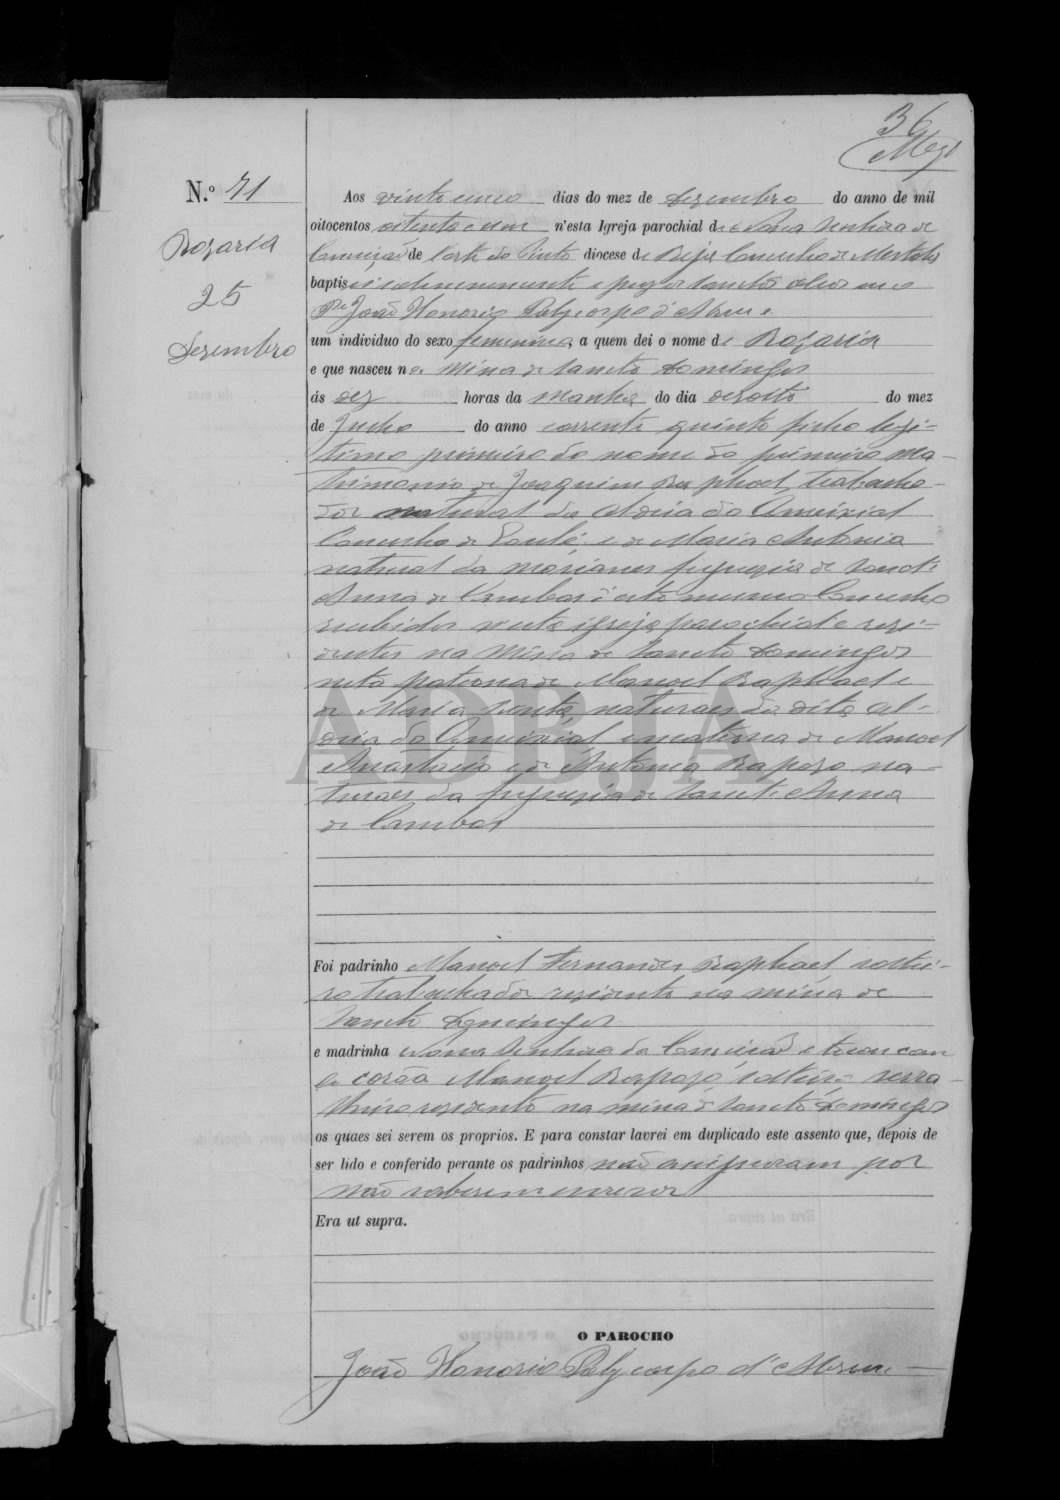 36
N.º 71
Rozaria
25
Dezembro
Aos vinte cinco dias do mez de Dezembro do anno de mil
oitocentos oitenta e um n'esta Igreja parochial de Nossa Senhora da
Conceição de Corte do Pinto diocese de Beja Concelho de Mertola
baptisei solemnemente e puz os Sanctos oleos eu o
Pe João Honorio Polycarpo d'Abreu
um individuo do sexo feminino, a quem dei o nome de Rozaria
e que nasceu na Mina de Sancto Domingos
ás dez horas da manhã do dia dezoito do mez
de Junho do anno corrente quinto filho legi-
timo primeiro do nome do primeiro ma-
trimonio de Joaquim Raphael, trabalha-
dor natural da Aldeia do Ameixial
Concelho de Loulé, e de Maria Antonia
natural da freguezia de Sanct'
Anna de Cambas d'este mesmo Concelho
recebidos n'esta igreja parochial e rezi-
dentes na Mina de Sancto Domingos
neta paterna de Manoel Raphael e
de Maria naturaes da dita al-
deia do Ameixial, e materna de Manoel
Anastacio e de Antonia Rapozo na-
turaes da freguezia de Sanct'Anna
de Cambas
AD BJA
Foi padrinho Manoel Fernandes Raphael soltei-
ro trabalhador rezidente na mina de
Sancto Domingos
e madrinha Nossa Senhora da Conceição e tocou com
a corôa Manoel Rapozo solteiro serra-
lheiro rezidente na mina de Sancto Domingos
os quaes sei serem os proprios. E para constar lavrei em duplicado este assento que, depois de
ser lido e conferido perante os padrinhos não assignaram por
não saberem escrever
Era ut supra.
O PAROCHO
João Honorio Polycarpo d'Abreu